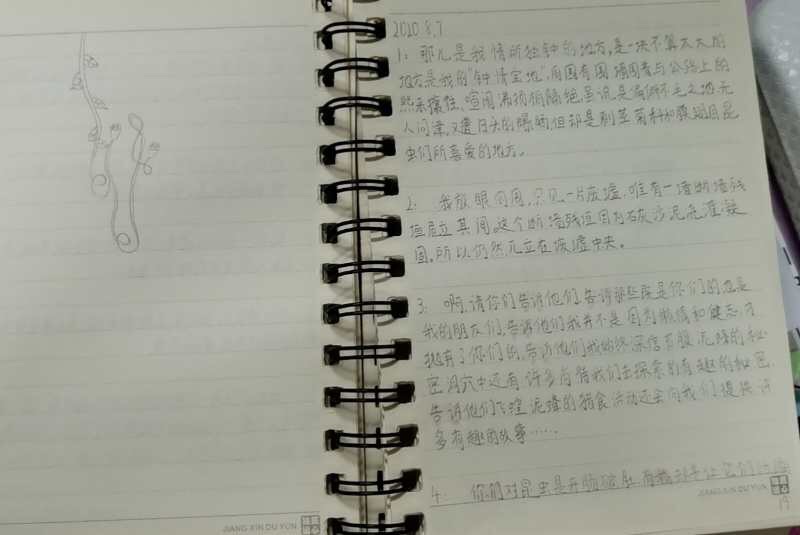 2020.8.7
1: 那儿是我情所独钟的地方,是一块不算太大的
地方是我的"钟情宝地",周围有围墙围着与公路上的
熙来攘往、喧闹沸扬相隔绝,虽说是偏僻不毛之地,无
人问津,又遭日头的曝晒,但却是刺茎菊科和膜翅目昆
虫们所喜爱的地方。
2: 我放眼四周,只见一片废墟,唯有一堵断墙残
垣屹立其间。这个断墙残垣因为石灰沙泥浇灌凝
固,所以仍然兀立在废墟中央。
3: 啊,请你们告诉他们,告诉那些既是你们的也是
我的朋友们,告诉他们我并不是因为懒惰和健忘,才
抛弃了你们的,告诉他们我始终深信百腹泥蜂的秘
密洞穴中还有许多尚待我们去探索的有趣的秘密,
告诉他们飞蝗泥蜂的猎食活动还会向我们提供许
多有趣的故事……
4: 你们对昆虫是开膛破肚,
JIANG XIN DU YUN
JIANG XIN DU YUN